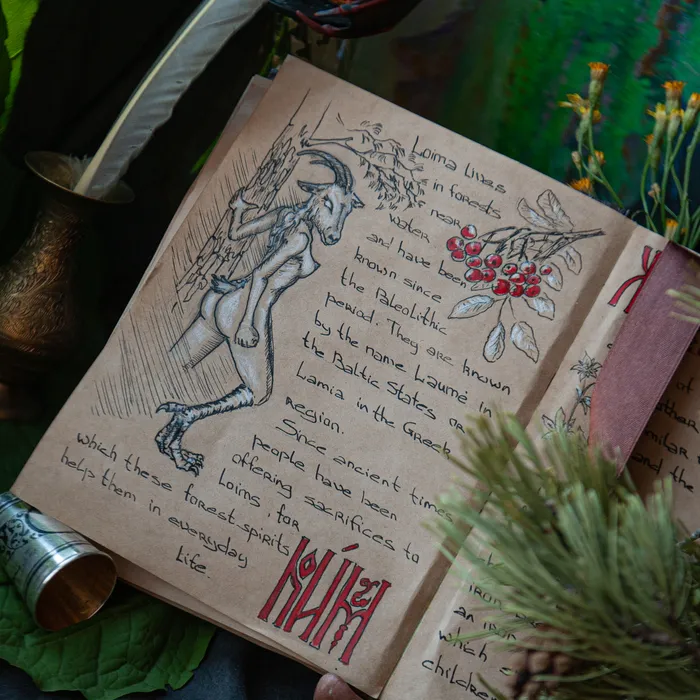 Loima lives
in forests
near
water
and have been
known since
the Paleolithic
period. They are known
by the name Laumė in
the Baltic States or
Lamia in the Greek
region.
Since ancient times
people have been
offering sacrifices to
Loims, for
which these forest spirits
help them in everyday
life.
of
and the
iron
an iron
which